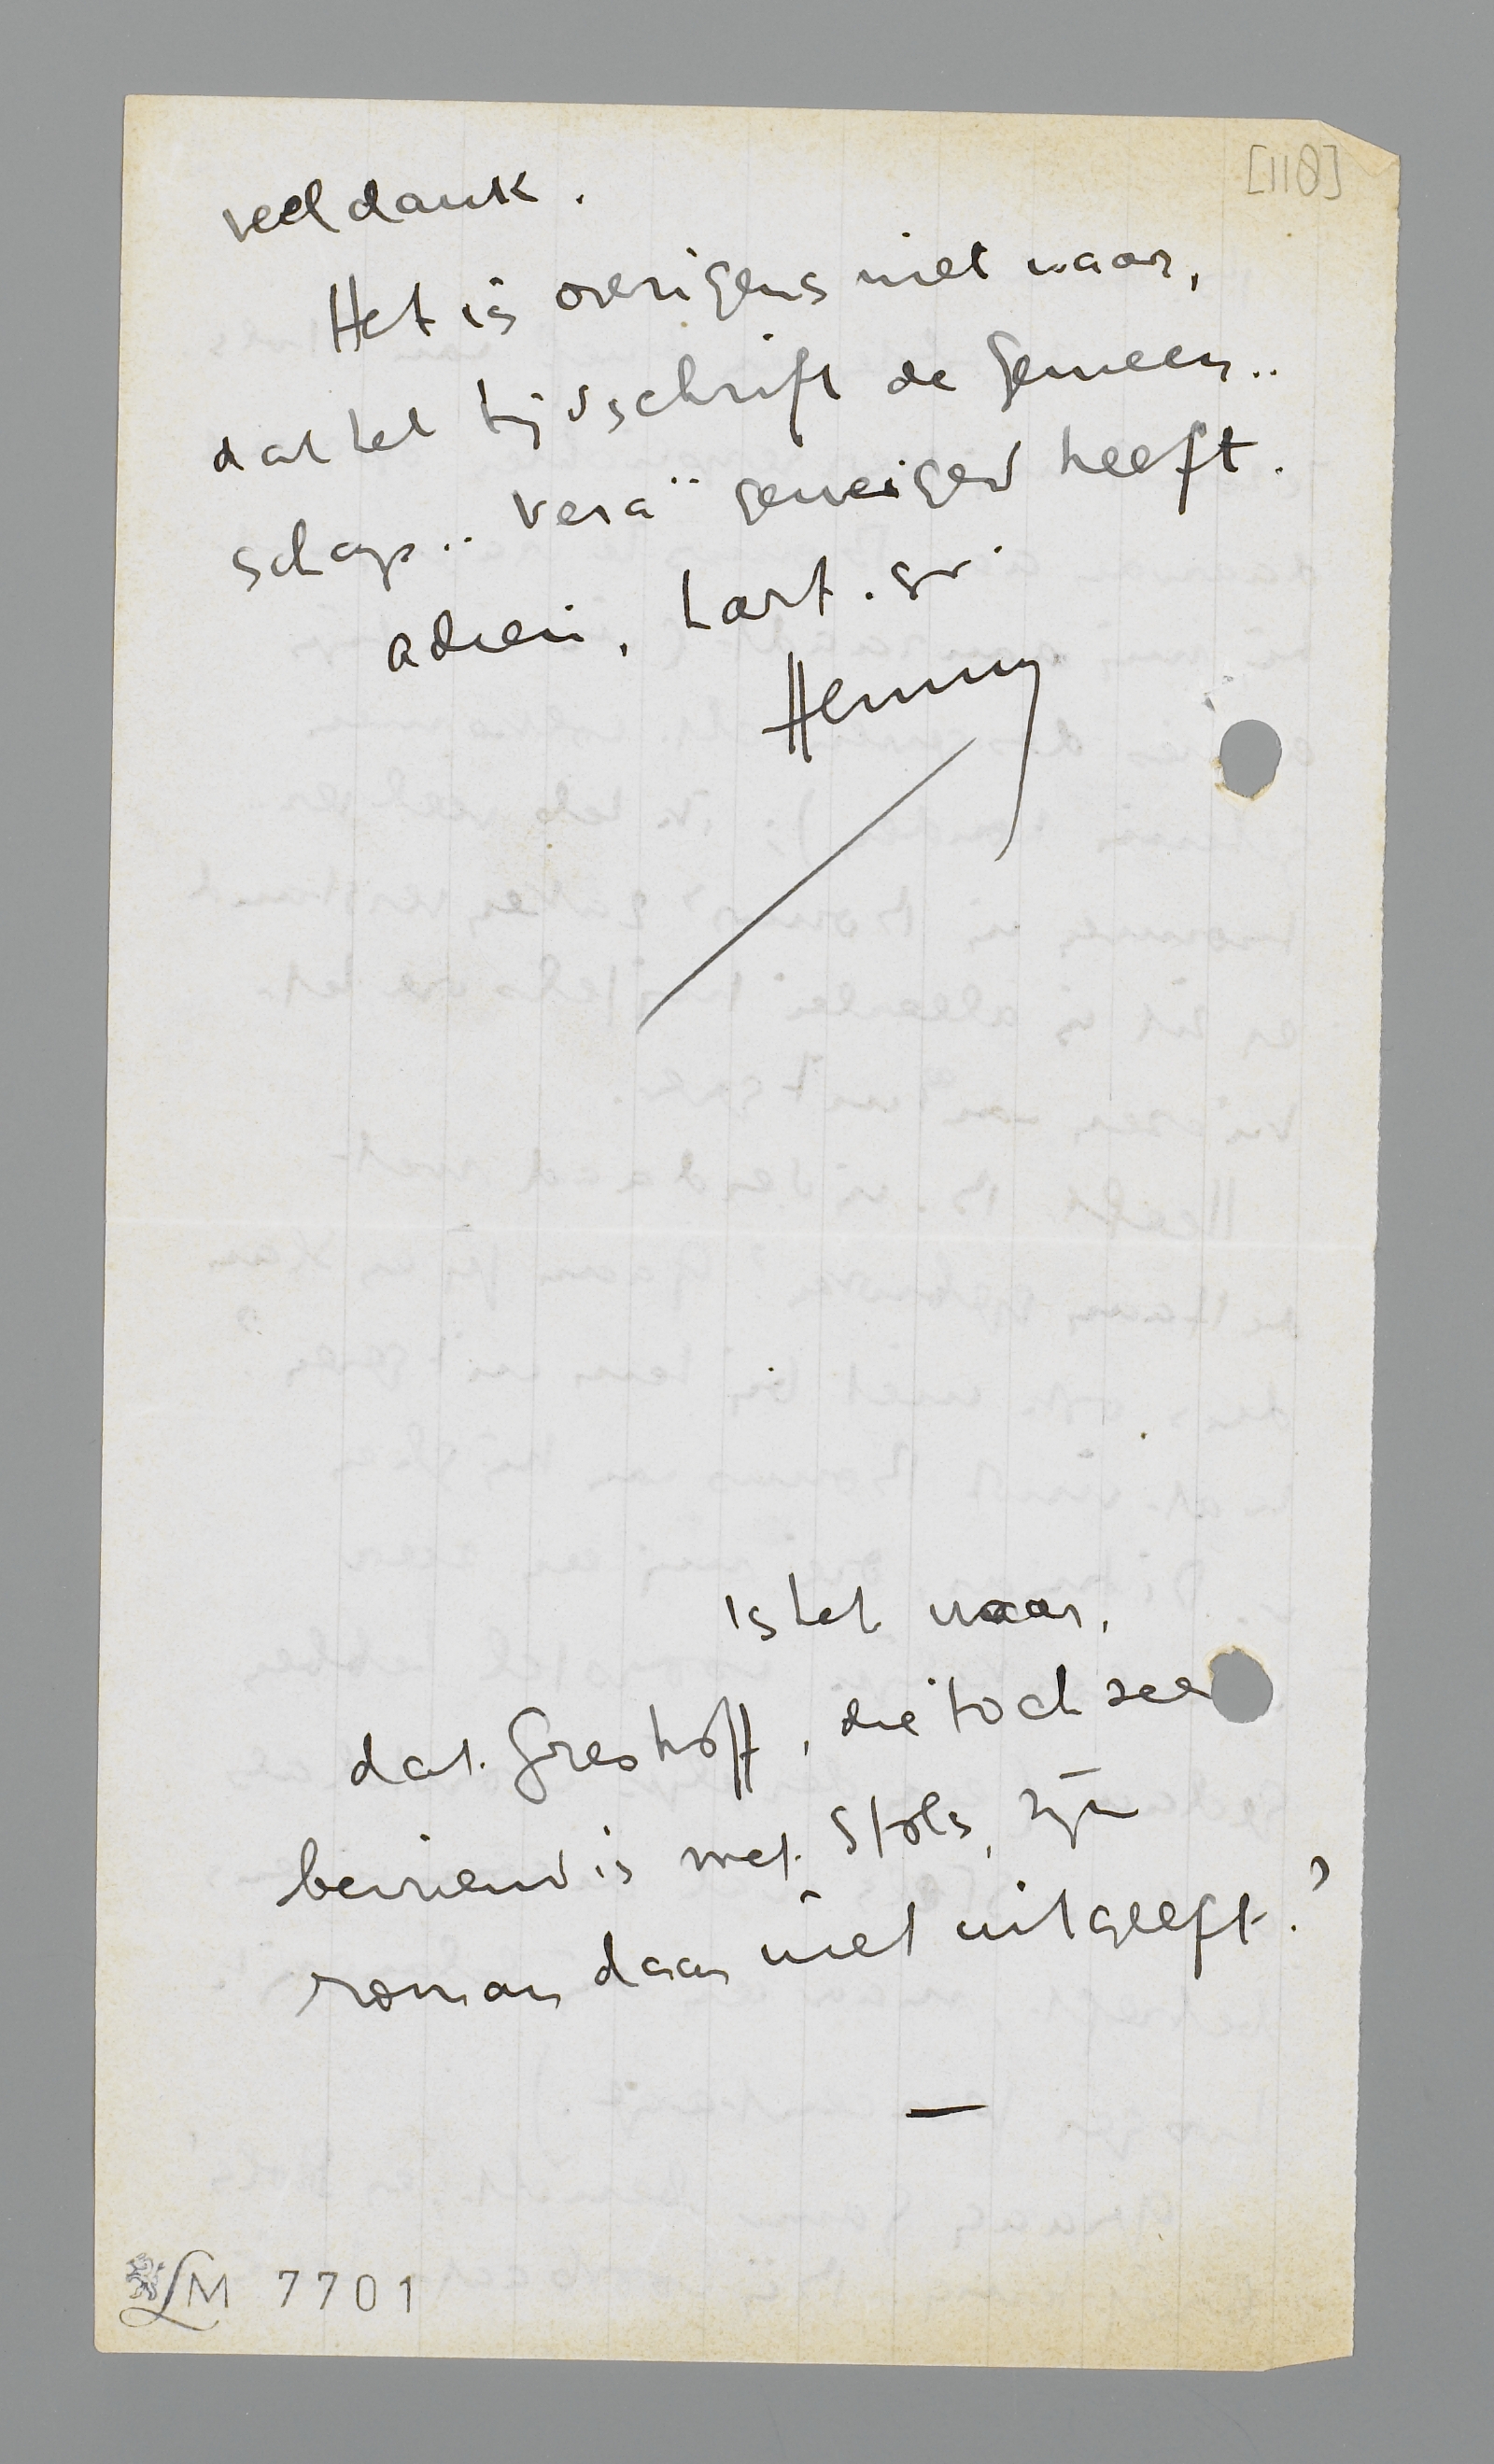 [118]
veel dank.
Het is overigens niet waar,
dat het tijdschrift de Gemeen..
schap.. Vera" geweigerd heeft.
adieu, hart. gr.
Henny
is het waar,
dat Greshoff, die toch zeer
bevriend is met Stols, zijn
roman daar niet uitgeeft?
—
LM 7701